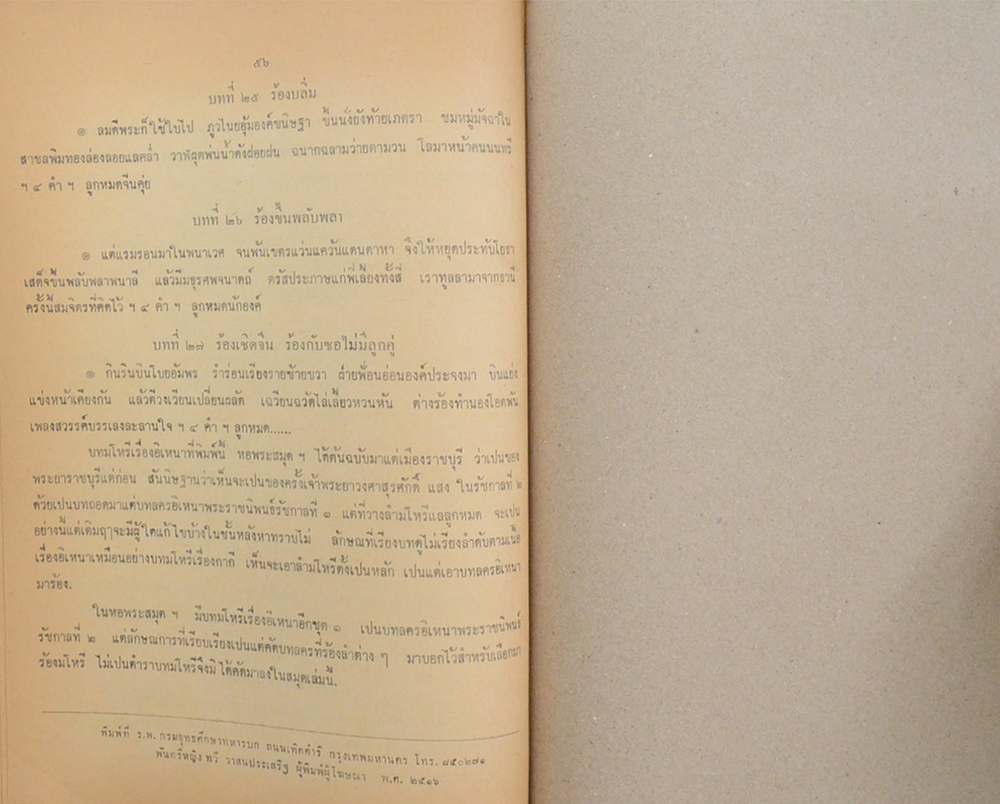 ๕๖
บทที่ ๒๕ ร้องบลิ่ม
๏ ลมดีพระก็ใช้ใบไป ภูวไนยอุ้มองค์ขนิษฐา ขึ้นนั่งยังท้ายเภตรา ชมหมู่มัจฉาใน
สาชลพิมทองล่องลอยแลคล่ำ วาฬผุดพ่นน้ำดังฝอยฝน ฉนากฉลามว่ายตามวน โลมาหน้าคนนนทรี
ฯ ๔ คำ ฯ ลูกหมดจีนคุ่ย
บทที่ ๒๖ ร้องขึ้นพลับพลา
๏ แต่แรมรอนมาในพนาเวศ จนพ้นเขตรแว่นแคว้นแดนดาหา จึงให้หยุดประทับโยธา
เสด็จขึ้นพลับพลาพนาลี แล้วมีมธุรศพจนาดถ์ ตรัสประภาษแก่พี่เลี้ยงทั้งสี่ เราทูลลามาจากธานี
ครั้งนี้สมจิตรที่คิดไว้ ฯ ๔ คำ ฯ ลูกหมดนักองค์
บทที่ ๒๗ ร้องเชิดจีน ร้องกับซอไม่มีลูกคู่
๏ กินรินบินโบยอัมพร รำร่อนเรียงรายซ้ายขวา ฝ่ายพื่อนอ่อนองค์ประจงมา บินแย่ง
แข่งหน้าเคียงกัน แล้วตีวงเวียนเปลี่ยนผลัด เฉวียนฉวัดไล่เลี้ยวหวนหัน ต่างร้องทำนองโอดพัน
เพลงสวรรค์บรรเลงละลานใจ ฯ ๔ คำ ฯ ลูกหมด......
บทมโหรีเรื่องอิเหนาที่พิมพ์นี้ หอพระสมุด ฯ ได้ต้นฉบับมาแต่เมืองราชบุรี ว่าเปนของ
พระยาราชบุรีแต่ก่อน สันนิษฐานว่าเห็นจะเปนของครั้งเจ้าพระยาวงศาสุรศักดิ์ แสง ในรัชกาลที่ ๒
ด้วยเปนบทถอดมาแต่บทลครอิเหนาพระราชนิพนธ์รัชกาลที่ ๑ แต่ที่วางลำมโหรีแลลูกหมด จะเปน
อย่างนี้แต่เดิมฤๅจะมีผู้ใดแก้ไขบ้างในชั้นหลังหาทราบไม่ ลักษณที่เรียงบทดูไม่เรียงลำดับตามเนื้อ
เรื่องอิเหนาเหมือนอย่างบทมโหรีเรื่องกากี เห็นจะเอาลำมโหรีตั้งเปนหลัก เปนแต่เอาบทลครอิเหนา
มาร้อง.
ในหอพระสมุด ฯ มีบทมโหรีเรื่องอิเหนาอีกชุด ๑ เปนบทลครอิเหนาพระราชนิพนธ์
รัชกาลที่ ๒ แต่ลักษณการที่เรียบเรียงเปนแต่คัดบทลครที่ร้องลำต่าง ๆ มาบอกไว้สำหรับเลือกมา
ร้องมโหรี ไม่เปนตำราบทมโหรีจึงมิได้คัดมาลงในสมุดเล่มนี้.
พิมพ์ที่ ร.พ. กรมยุทธศึกษาทหารบก ถนนเทิดดำริ กรุงเทพมหานคร โทร. ๘๕๐๒๗๑
พันตรีหญิง ทวี วาสนประเสริฐ ผู้พิมพ์ผู้โฆษณา พ.ศ. ๒๕๑๖